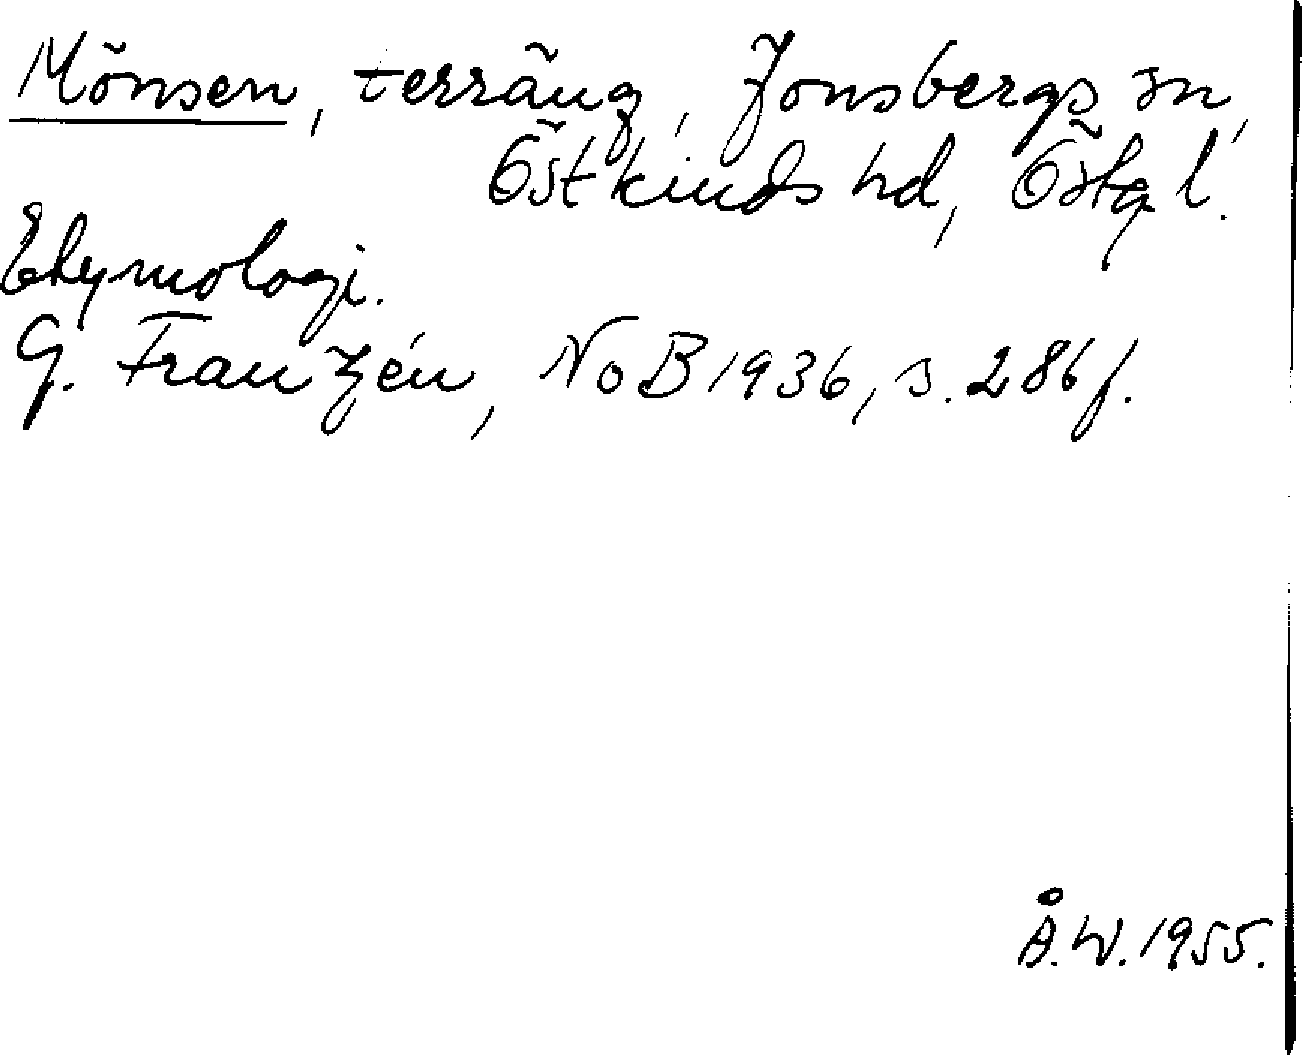 Mönsen, terräng, Jonsbergs sn,
Östkinds hd, Östg l.
Etymologi.
G. Franzén, NoB 1936, s. 286 f.
Å.W. 1955.